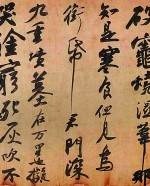 破竈燒濕葦那
知是寒食但見烏
銜帋君門深
九重墳墓在万里也擬
哭塗窮死灰吹不